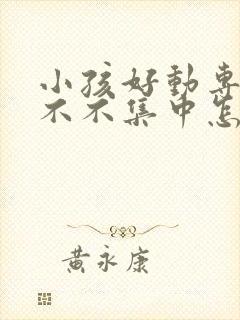 小孩好動專
不不集中怎
黃永康